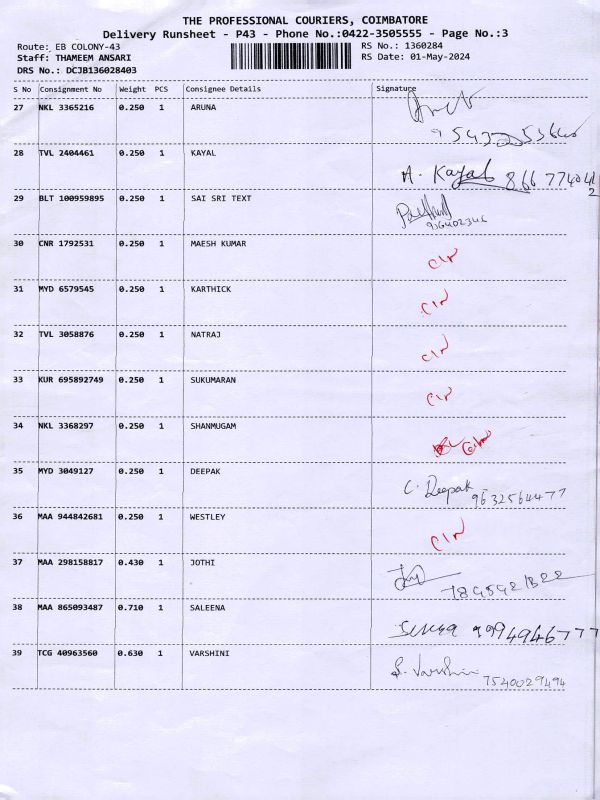 THE PROFESSIONAL COURIERS, COIMBATORE
Delivery Runsheet - P43 - Phone No.:0422-3505555 - Page No.:3
Route: EB COLONY-43 RS No.: 1360284
Staff: THAMEEM ANSARI RS Date: 01-May-2024
DRS No.: DCJB136028403
S No Consignment No Weight PCS Consignee Details Signature
27 NKL 3365216 0.250 1 ARUNA
28 TVL 2404461 0.250 1 KAYAL
A. Kayal
29 BLT 100959895 0.250 1 SAI SRI TEXT
30 CNR 1792531 0.250 1 MAESH KUMAR
31 MYD 6579545 0.250 1 KARTHICK
32 TVL 3058876 0.250 1 NATRAJ
33 KUR 695892749 0.250 1 SUKUMARAN
34 NKL 3368297 0.250 1 SHANMUGAM
35 MYD 3049127 0.250 1 DEEPAK
C. Deepak 9632564477
36 MAA 944842681 0.250 1 WESTLEY
37 MAA 298158817 0.430 1 JOTHI
38 MAA 865093487 0.710 1 SALEENA
9994946777
39 TCG 40963560 0.630 1 VARSHINI
S. Varshini 7540029494